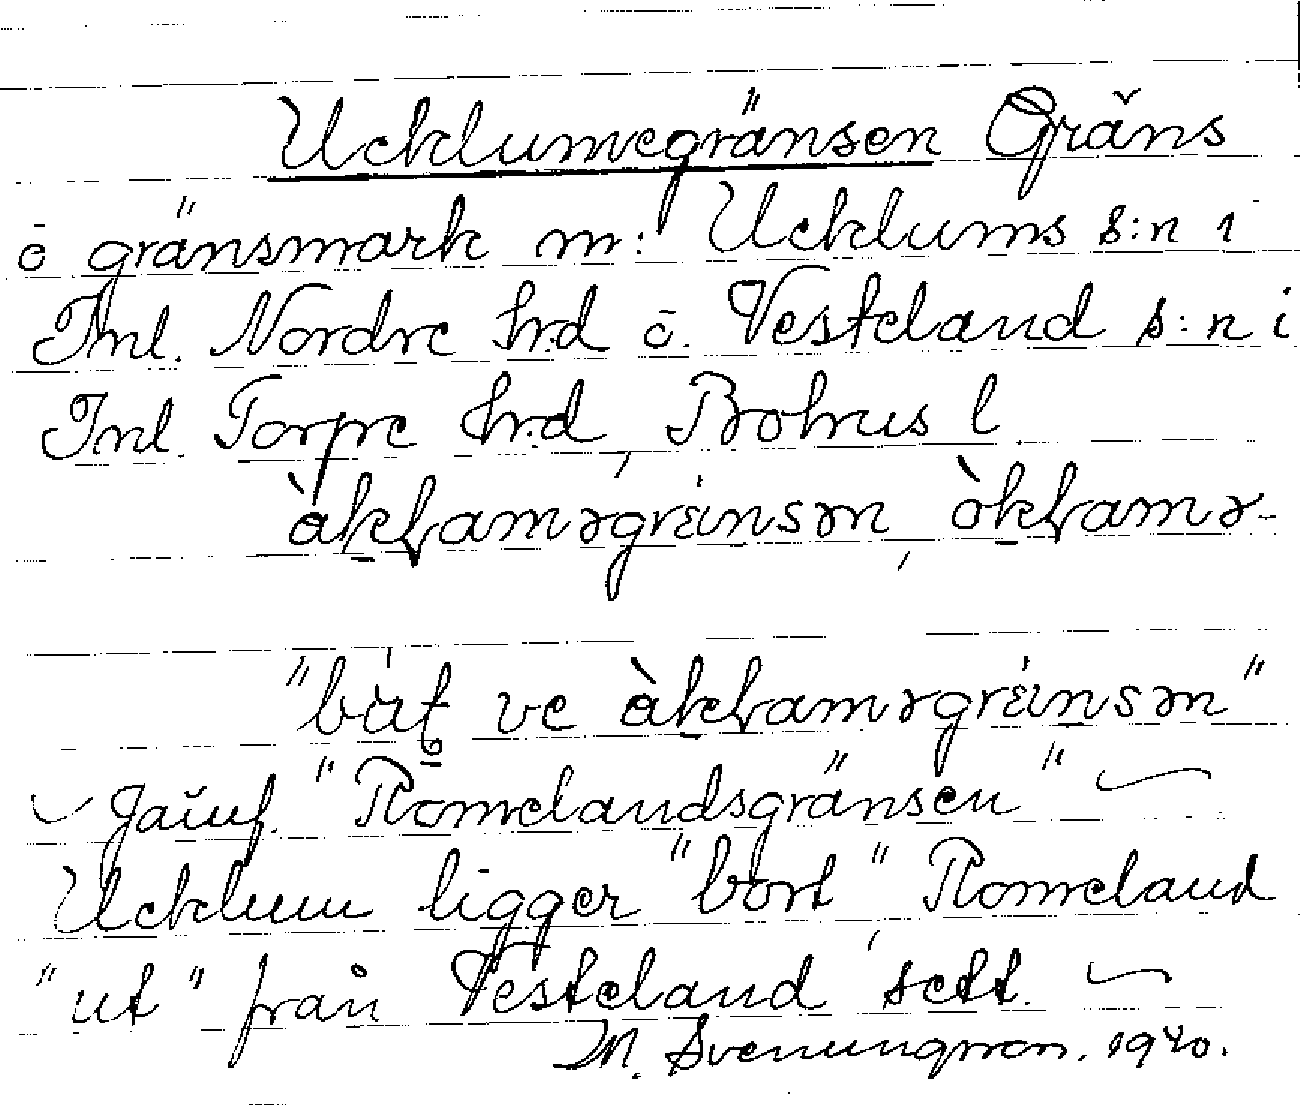 Ucklumegränsen Gräns
o gränsmark m: Ucklums s:n i
Inl. Nordre hrd o. Vesteland s:n i
Inl. Torpe hrd, Bohus l.
àkɬaməgräinsən, òkɬamə-
"bu̇t ve àkɬaməgräinsən"
Jaǔuf. "Romelandsgränsen"
Ucklum ligger "bort" Romeland
"ut" från Vesteland sett.
M. Svenungsson. 1940.